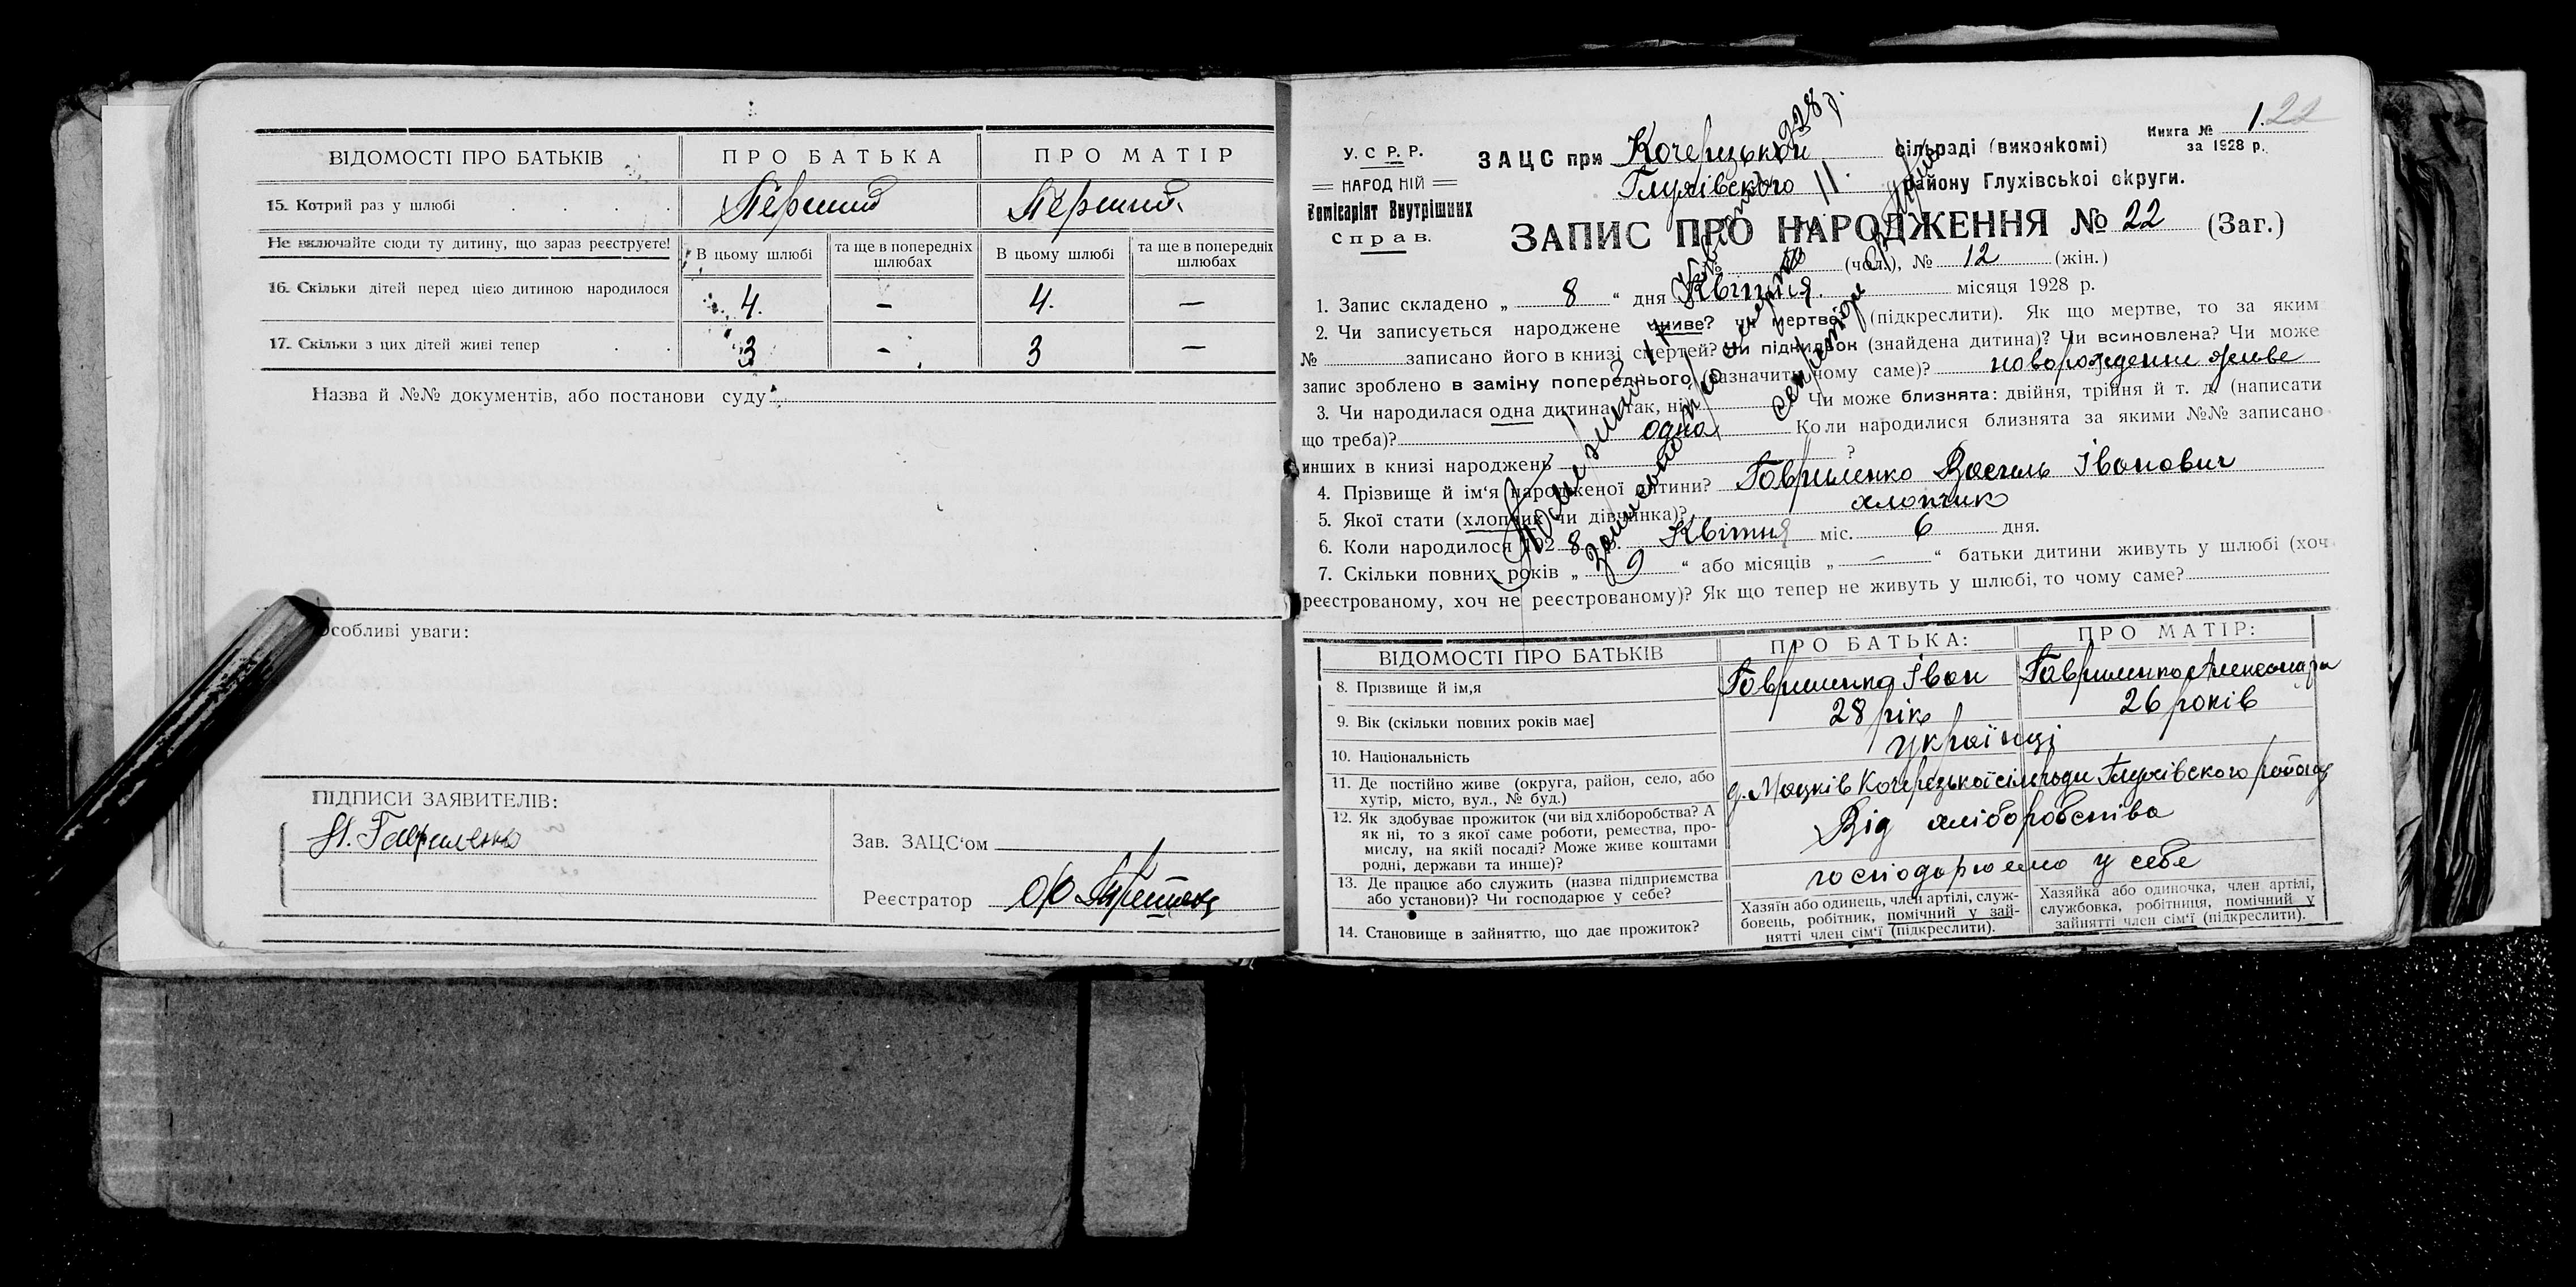 ВІДОМОСТІ ПРО БАТЬКІВ
ПРО БАТЬКА
ПРО МАТІР
15. Котрий раз у шлюбі
Перший
Перший.
Не включайте сюди ту дитину, що зараз реєструєте!
В цьому шлюбі
та ще в попередніх шлюбах
В цьому шлюбі
та ще в попередніх шлюбах
16. Скільки дітей перед цією дитиною народилося
4.
—
4.
—
17. Скільки з цих дітей живі тепер
3
-
3
—
Назва й №№ документів, або постанови суду
Особливі уваги:
ПІДПИСИ ЗАЯВИТЕЛІВ:
Гавриленко
Зав. ЗАЦС‘ом
Реєстратор
У. С Р. Р.
НАРОДНІЙ
Комісаріят Внутрішних
Справ.
ЗАЦС при Кочерицькой сільраді (виконкомі)
Глухівского района Глухівської округи.
Книга № 1. 22
за 1928 р.
ЗАПИС ПРО НАРОДЖЕННЯ № 22 (Заг.)
№ (чол.), № 12 (жін.)
1. Запис складено „ 8 “ дня Квітня. місяця 1928 р.
2. Чи записується народжене живе? чи мертве? (підкреслити). Як що мертве, то за яким
№ записано його в книзі смертей? Чи підкидьок (знайдена дитина)? Чи всиновлена? Чи може
запис зроблено в заміну попереднього (зазначити чому саме)? новорождение живе
3. Чи народилася одна дитина так, ні Чи може близнята: двійня, трійня й т. д. (написати
що треба)? одна Коли народилися близнята за якими №№ записано
инших в книзі народжень ?
4. Прізвище й ім‘я народженої дитини? Гавриленко Василь Іванович
5. Якої стати (хлопчик чи дівчинка)? хлопчик
6. Коли народилося 1928 р. Квітня міс. 6 дня.
7. Скільки повних років „ 9 “ або місяців „ — “ батьки дитини живуть у шлюбі (хоч
реєстрованому, хоч не реєстрованому)? Як що тепер не живуть у шлюбі, то чому саме?
ВІДОМОСТІ ПРО БАТЬКІВ
ПРО БАТЬКА:
ПРО МАТІР:
8. Прізвище й ім,я
Гавриленко Іван
Гавриленко Александра
9. Вік (скільки повних років має]
28 рік
26 років
10. Національність
Українці
11. Де постійно живе (округа, район, село, або
хутір, місто, вул., № буд.)
Кочерецької сільради Глухівского района
12. Як здобуває прожиток (чи від хліборобства? А
як ні, то з якої саме роботи, ремества, про-
мислу, на якій посаді? Може живе коштами
родні, держави та инше)?
Від хліборобства
13. Де працює або служить (назва підприємства
або установи)? Чи господарює у себе?
господарюємо у себе
14. Становище в зайняттю, що дає прожиток?
Хазяїн або одинець, член артілі, служ-
бовець, робітник, помічний у зай-
нятті член сім‘ї (підкреслити).
Хазяйка або одиночка, член артілі,
службовка, робітниця, помічний у
зайнятті член сім‘ї (підкреслити).